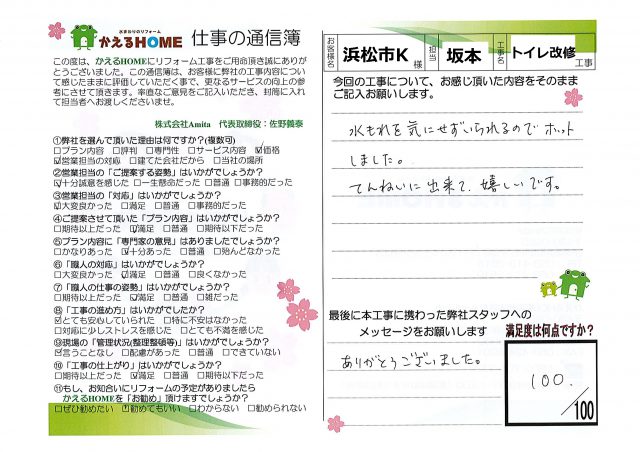 水まわりのリフォーム
かえるHOME 仕事の通信簿
この度は、かえるHOMEにリフォーム工事をご用命頂き誠にありが
とうございました。この通信簿は、お客様に弊社の工事内容につい
て感じたままに評価していただく事で、更なるサービスの向上の参
考にさせて頂きます。率直なご意見をご記入いただき、封筒に入れ
て担当者へお渡しくださいませ。
株式会社Amita 代表取締役：佐野義泰
①弊社を選んで頂いた理由は何ですか?(複数可)
□プラン内容 □評判 □専門性 □サービス内容 ☑価格
☑営業担当の対応 □建てた会社だから □当社の場所
②営業担当の「ご提案する姿勢」はいかがでしょうか?
☑十分誠意を感じた □一生懸命だった □普通 □事務的だった
③営業担当の「対応」はいかがでしょうか?
☑大変良かった □満足 □普通 □事務的だった
④ご提案させて頂いた「プラン内容」はいかがでしょうか?
□期待以上だった ☑満足 □普通 □期待以下だった
⑤プラン内容に「専門家の意見」はありましたでしょうか?
□かなりあった ☑十分あった □普通 □殆んどなかった
⑥「職人の対応」はいかがでしょうか?
□大変良かった ☑満足 □普通 □良くなかった
⑦「職人の仕事の姿勢」はいかがでしょうか?
□期待以上だった ☑満足 □普通 □雑だった
⑧「工事の進め方」はいかがでしたか?
☑とても安心していられた □特に不安はなかった
□対応に少しストレスを感じた □とても不満を感じた
⑨現場の「管理状況(整理整頓等)」はいかがでしょうか?
☑言うことなし □配慮があった □普通 □できていない
⑩「工事の仕上がり」はいかがでしょうか?
□期待以上だった ☑満足 □普通 □期待以下だった
⑪もし、お知合いにリフォームの予定がありましたら
かえるHOMEを「お勧め」頂けますでしょうか?
□ぜひ勧めたい ☑勧めてもいい □わからない □勧められない
お客様名 浜松市K 様 担当 坂本 工事名 トイレ改修 工事
今回の工事について、お感じ頂いた内容をそのまま
ご記入お願いします。
水もれを気にせずいられるのでホット
しました。
てんねいに出来て、嬉しいです。
最後に本工事に携わった弊社スタッフへの
メッセージをお願いします
ありがとうございました。
満足度は何点ですか?
100.
/100